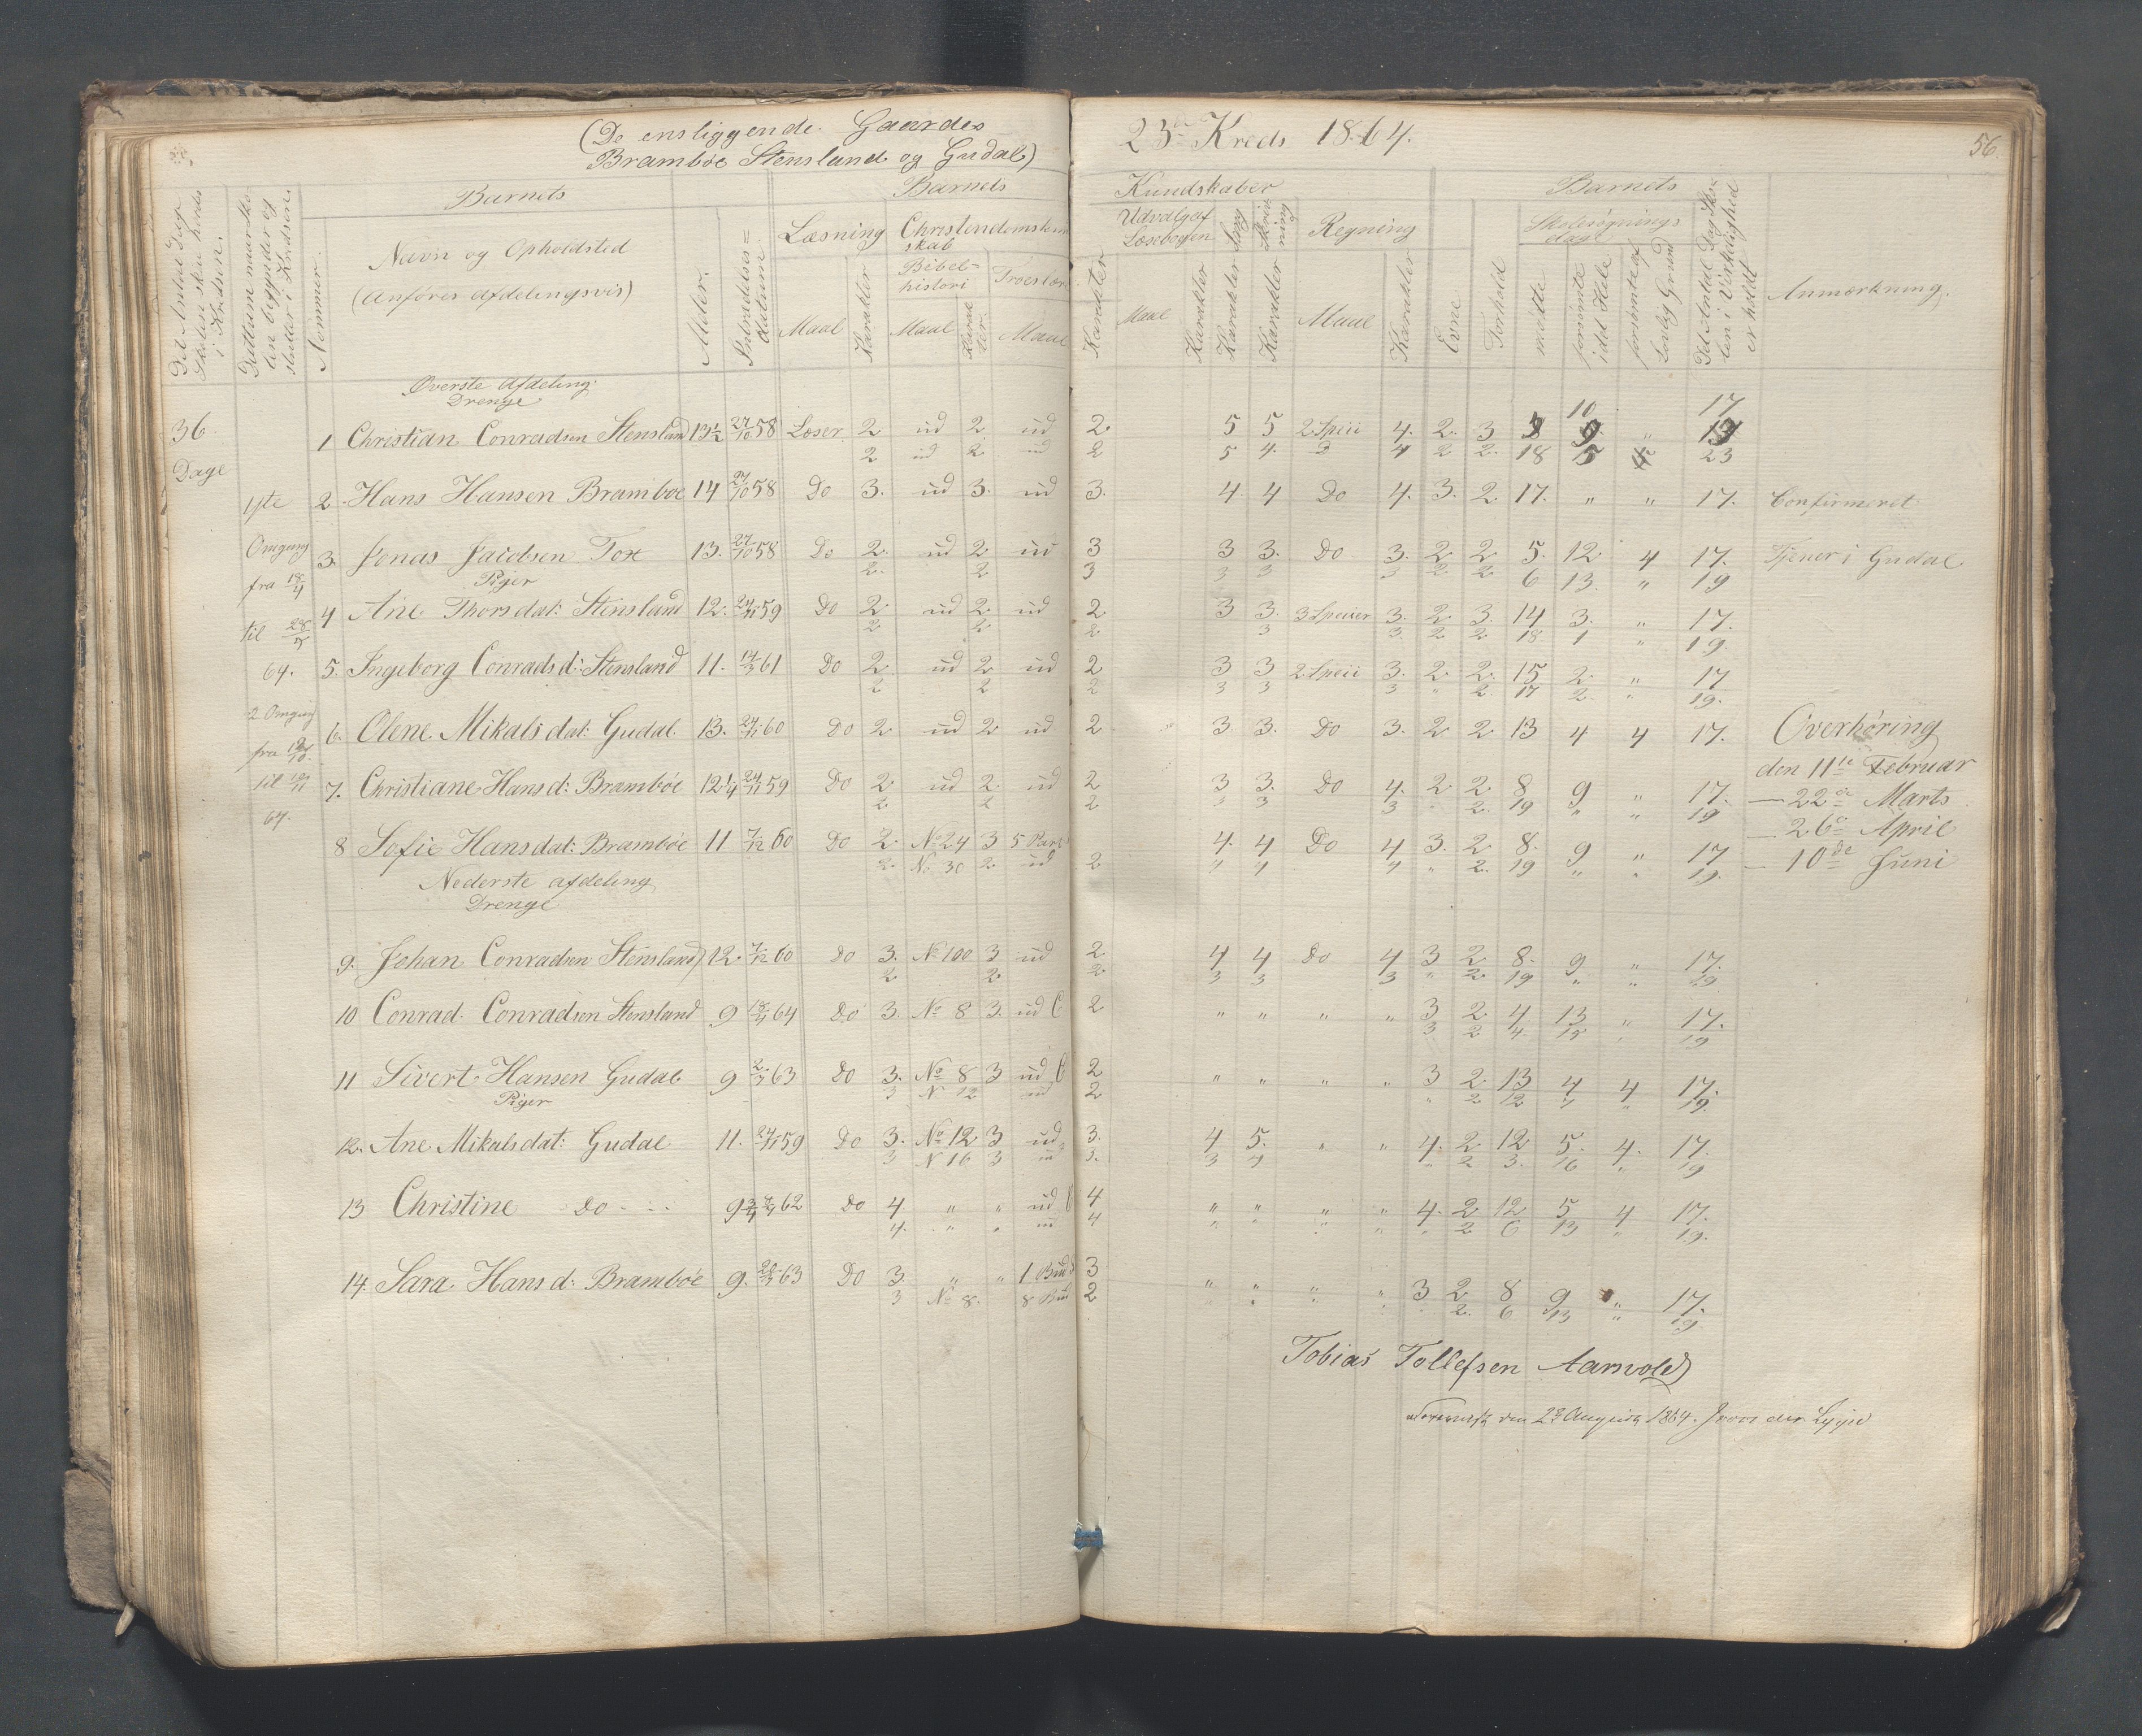 (De ensliggende Gaardes
Bramboe Stensland og Gudal)
23de Kreds 1864.
56.
Det Antal Dage Skolen skal holdes i Kredsen.
Dattum naar skolen begynder og slutter i Kredsen.
Nommer.
Barnets
Navn og Opholdsted
(Anføres afdelingsvis)
Alder.
Intrædelses=datum
Barnets
Læsning
Maal
Karakter
Christendomskundskab
Bibel=histori
Maal
Karakter.
Troeslær
Maal
Karakter
Kundskaber
Udvalg af Læsebogen
Maal
Karakter
Sang
Karakter
Skrivning
Karakter
Regning
Maal
Karakter
Barnets
Evne
Forhold
Skolesøgnings dage
mødte
forsømte i det Hele
forsømte af Lovlig Grund
Det Antal Dag Skolen i Virkelighed er holdt
Anmærkning.
Øverste Afdeling.
Drenge
36. Dage
1 Christian Conradsen Stensland 13½ 27/10 58 Læser 2 ud 2 ud 2. 5 5 2 Speci 4. 2. 3 10 17
2 ud 2 ud 2 5 4. 3 4 2 2. 18 5 23
2 Hans Hansen Bramboe 14 27/10 58 Do 3. ud 3. ud 3. 4. 4 Do 4. 3. 2. 17. " " 17. Confirmeret
3. Jonas Jacobsen Tox 13. 27/10 58 Do 2. ud 2 ud 3 3 3. Do 3. 2 2 5. 12 4 17. Tjener i Gudal
2. 2 3 3 3 3 2 2 6 13. " 19
Piger
4 Ane Thorsdat: Stensland 12. 24/11 59 Do 2. ud 2 ud 2 3 3. 3 Specier 3. 2 3. 14 3. " 17.
2 2. 2 3 3. 2 2 18 1 " 19.
5. Ingeborg Conradsd: Stensland 11. 14/3 61 Do 2. ud 2 ud 2 3 3 2 Speci 3. 2. 2. 15 2. " 17
2 2 2 3 3 3 " 2 17 2. " 19.
6. Olene Mikalsdat: Gudal. 13. 24/11 60 Do 2. ud 2 ud 2 3 3. Do 3. 2 2 13 4 4 17.
7. Christiane Hansd: Bramboe 12¼ 24/11 59 Do 2. ud 2. ud 2 3 3. Do 4. 2 2 8 9 " 17.
2 2 2 3 3 3 2. 19 " " 19
8 Sofie Hansdat: Bramboe 11. 7/12 60 Do 2. No 24 3 5 Part 4. 4 Do 4 3. 2 8. 9 " 17
2. No 30 2 ud 2 4 4 4 " 2. 19 " " 19.
1ste Omgang fra 18/4 til 28/5 64.
2 Omgang fra til 64.
Overhøring
den 11te Februar
— 22de Marts
— 26de April
— 10de Juni
Nederste afdeling
Drenge
9. Johan Conradsen Stensland 12. 7/12 60 Do 3. No 100 3 ud 2 4 4 Do 4 3 2 8. 9 " 17.
2 2. 2 3 3 3 " 2. 19 " " 19
10 Conrad. Conradsen Stensland 9 18/4 64 Do 3. No 8 3. ud 2 " " " " 3 2 4 13 " 17.
3 2 4. 15 19
11 Sivert Hansen Gudal 9 63 Do 3. No 8 3 ud 2 " " " " 3 2. 13 4 4 17.
3 N 12 ud 2 " 2 12 7 " 19.
Piger
12. Ane Mikalsdat: Gudal 11. 24/11 59 Do 3. No 12 3 ud 3. 4 5. " " 4. 2 12 5. 4. 17.
3 N 16 3 ud 3. 3 4 " 2 3. 16 " 19
13 Christine Do 9¾ 62 Do 4. " " ud 4 " " " " 4. 2 12 5 4 17.
4. " " ud 4 " " " " " 2 6 13 " 19.
14. Sara Hansd: Bramboe 9. 63 Do 3. " " 1 Bud 3 " " " " 3 2 8 9 " 17.
3 No 8. 8 Bud 2 2. 6 13 " 19.
Tobias Tollefsen Aarvold
den August 1864.